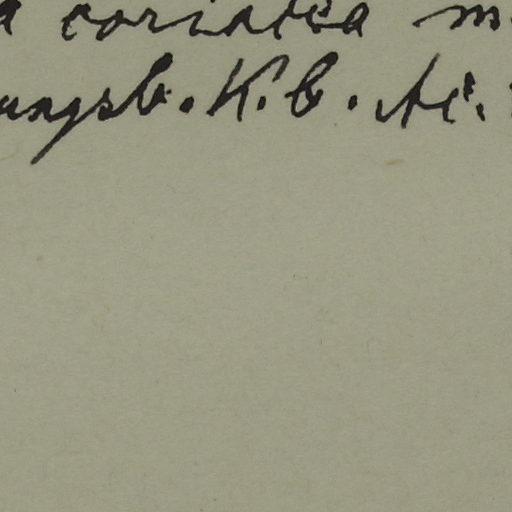 a coriacea m
ungsb. K. b. Ac.